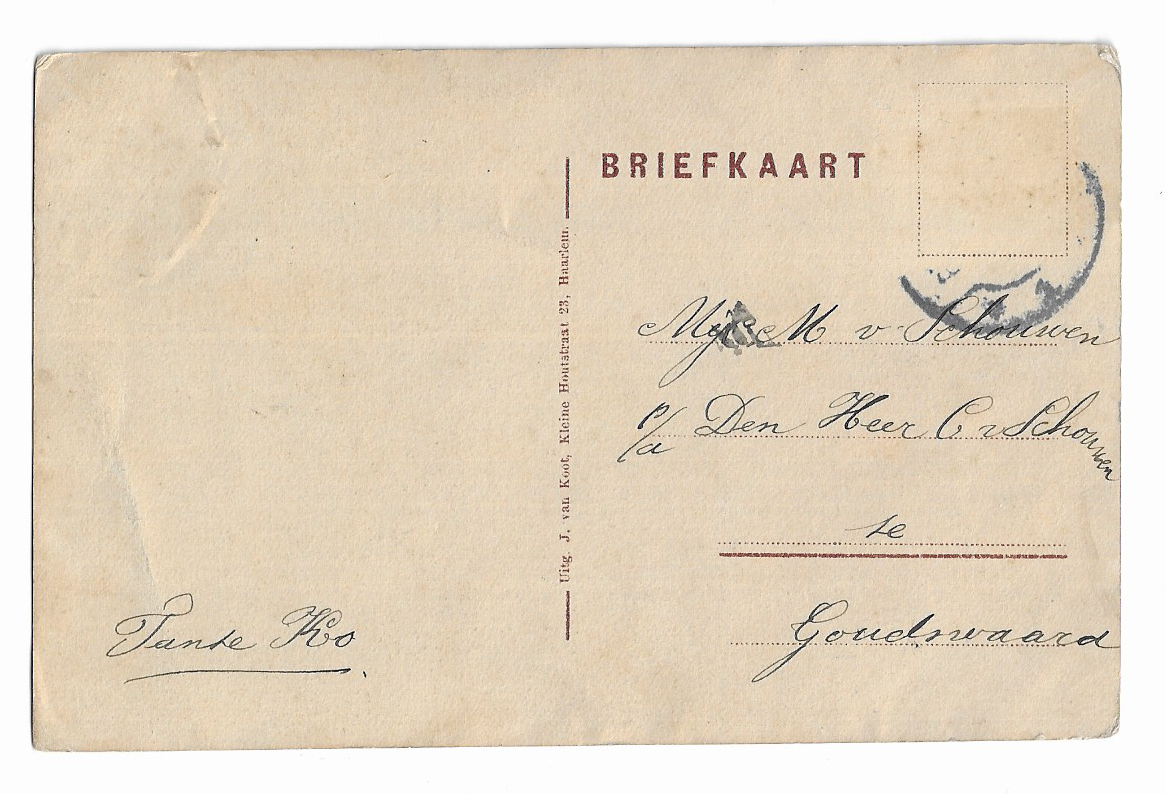 BRIEFKAART
Uitg. J. van Koot, Kleine Houtstraat 23, Haarlem.
Mej M v. Schouwen
p/a Den Heer C v Schouwen
te
Goudswaard
Tante Ko